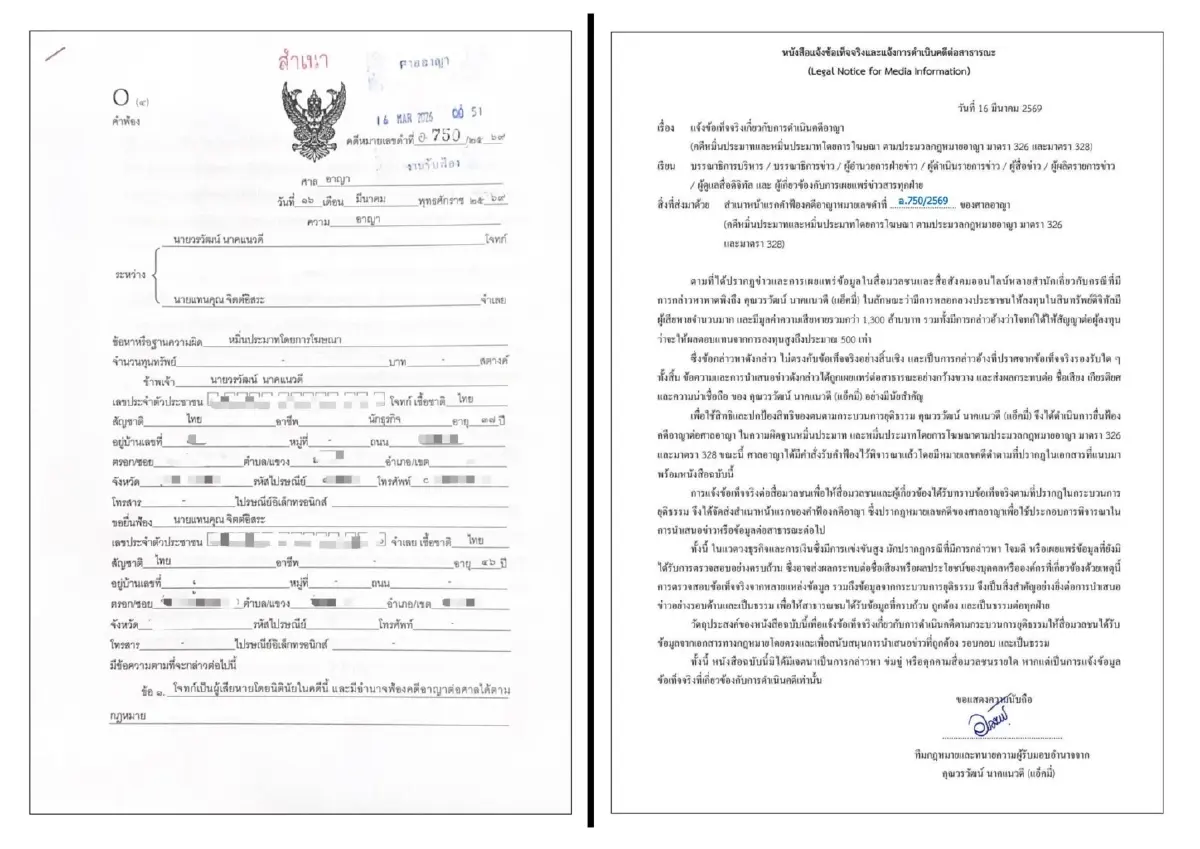 สำเนา
ศาลอาญา
16 MAR 2026
คดีหมายเลขดำที่ อ 750 /๒๕ ๖๙
งานรับฟ้อง
O (๔)
คำฟ้อง
ศาล อาญา
วันที่ ๑๖ เดือน มีนาคม พุทธศักราช ๒๕ ๖๙
ความ อาญา
นายวรวัฒน์ นาคแนวดี โจทก์
ระหว่าง
นายแทนคุณ จิตต์อิสระ จำเลย
ข้อหาหรือฐานความผิด หมิ่นประมาทโดยการโฆษณา
จำนวนทุนทรัพย์ - บาท - สตางค์
ข้าพเจ้า นายวรวัฒน์ นาคแนวดี
เลขประจำตัวประชาชน โจทก์ เชื้อชาติ ไทย
สัญชาติ ไทย อาชีพ นักธุรกิจ อายุ ๓๗ ปี
อยู่บ้านเลขที่ หมู่ที่ - ถนน
ตรอก/ซอย ตำบล/แขวง อำเภอ/เขต
จังหวัด รหัสไปรษณีย์ โทรศัพท์
โทรสาร - ไปรษณีย์อิเล็กทรอนิกส์ -
ขอยื่นฟ้อง นายแทนคุณ จิตต์อิสระ
เลขประจำตัวประชาชน จำเลย เชื้อชาติ ไทย
สัญชาติ ไทย อาชีพ - อายุ ๔๖ ปี
อยู่บ้านเลขที่ หมู่ที่ - ถนน -
ตรอก/ซอย ตำบล/แขวง อำเภอ/เขต
จังหวัด รหัสไปรษณีย์ โทรศัพท์ -
โทรสาร - ไปรษณีย์อิเล็กทรอนิกส์ -
มีข้อความตามที่จะกล่าวต่อไปนี้
ข้อ ๑. โจทก์เป็นผู้เสียหายโดยนิตินัยในคดีนี้ และมีอำนาจฟ้องคดีอาญาต่อศาลได้ตาม
กฎหมาย
หนังสือแจ้งข้อเท็จจริงและแจ้งการดำเนินคดีต่อสาธารณะ
(Legal Notice for Media Information)
วันที่ 16 มีนาคม 2569
เรื่อง แจ้งข้อเท็จจริงเกี่ยวกับการดำเนินคดีอาญา
(คดีหมิ่นประมาทและหมิ่นประมาทโดยการโฆษณา ตามประมวลกฎหมายอาญา มาตรา 326 และมาตรา 328)
เรียน บรรณาธิการบริหาร / บรรณาธิการข่าว / ผู้อำนวยการฝ่ายข่าว / ผู้ดำเนินรายการข่าว / ผู้สื่อข่าว / ผู้ผลิตรายการข่าว
/ ผู้ดูแลสื่อดิจิทัล และ ผู้เกี่ยวข้องกับการเผยแพร่ข่าวสารทุกฝ่าย
สิ่งที่ส่งมาด้วย สำเนาหน้าแรกคำฟ้องคดีอาญาหมายเลขดำที่ อ.750/2569 ของศาลอาญา
(คดีหมิ่นประมาทและหมิ่นประมาทโดยการโฆษณา ตามประมวลกฎหมายอาญา มาตรา 326
และมาตรา 328)
ตามที่ได้ปรากฏข่าวและการเผยแพร่ข้อมูลในสื่อมวลชนและสื่อสังคมออนไลน์หลายสำนักเกี่ยวกับกรณีที่มี
การกล่าวหาพาดพิงถึง คุณวรวัฒน์ นาคแนวดี (แอ็คมี่) ในลักษณะว่ามีการหลอกลวงประชาชนให้ลงทุนในสินทรัพย์ดิจิทัลมี
ผู้เสียหายจำนวนมาก และมีมูลค่าความเสียหายรวมกว่า 1,300 ล้านบาท รวมทั้งมีการกล่าวอ้างว่าโจทก์ได้ให้สัญญาต่อผู้ลงทุน
ว่าจะให้ผลตอบแทนจากการลงทุนสูงถึงประมาณ 500 เท่า
ซึ่งข้อกล่าวหาดังกล่าว ไม่ตรงกับข้อเท็จจริงอย่างสิ้นเชิง และเป็นการกล่าวอ้างที่ปราศจากข้อเท็จจริงรองรับใด ๆ
ทั้งสิ้น ข้อความและการนำเสนอข่าวดังกล่าวได้ถูกเผยแพร่ต่อสาธารณะอย่างกว้างขวาง และส่งผลกระทบต่อ ชื่อเสียง เกียรติยศ
และความน่าเชื่อถือ ของ คุณวรวัฒน์ นาคแนวดี (แอ็คมี่) อย่างมีนัยสำคัญ
เพื่อใช้สิทธิและปกป้องสิทธิของตนตามกระบวนการยุติธรรม คุณวรวัฒน์ นาคแนวดี (แอ็คมี่) จึงได้ดำเนินการยื่นฟ้อง
คดีอาญาต่อศาลอาญา ในความผิดฐานหมิ่นประมาท และหมิ่นประมาทโดยการโฆษณาตามประมวลกฎหมายอาญา มาตรา 326
และมาตรา 328 ขณะนี้ ศาลอาญาได้มีคำสั่งรับคำฟ้องไว้พิจารณาแล้วโดยมีหมายเลขคดีดำตามที่ปรากฏในเอกสารที่แนบมา
พร้อมหนังสือฉบับนี้
การแจ้งข้อเท็จจริงต่อสื่อมวลชนเพื่อให้สื่อมวลชนและผู้เกี่ยวข้องได้รับทราบข้อเท็จจริงตามที่ปรากฏในกระบวนการ
ยุติธรรม จึงได้จัดส่งสำเนาหน้าแรกของคำฟ้องคดีอาญา ซึ่งปรากฏหมายเลขคดีของศาลอาญาเพื่อใช้ประกอบการพิจารณาใน
การนำเสนอข่าวหรือข้อมูลต่อสาธารณะต่อไป
ทั้งนี้ ในแวดวงธุรกิจและการเงินซึ่งมีการแข่งขันสูง มักปรากฏกรณีที่มีการกล่าวหา โจมตี หรือเผยแพร่ข้อมูลที่ยังมิ
ได้รับการตรวจสอบอย่างครบถ้วน ซึ่งอาจส่งผลกระทบต่อชื่อเสียงหรือผลประโยชน์ของบุคคลหรือองค์กรที่เกี่ยวข้องด้วยเหตุนี้
การตรวจสอบข้อเท็จจริงจากหลายแหล่งข้อมูล รวมถึงข้อมูลจากกระบวนการยุติธรรม จึงเป็นสิ่งสำคัญอย่างยิ่งต่อการนำเสนอ
ข่าวอย่างรอบด้านและเป็นธรรม เพื่อให้สาธารณชนได้รับข้อมูลที่ครบถ้วน ถูกต้อง และเป็นธรรมต่อทุกฝ่าย
วัตถุประสงค์ของหนังสือฉบับนี้เพื่อแจ้งข้อเท็จจริงเกี่ยวกับการดำเนินคดีตามกระบวนการยุติธรรมให้สื่อมวลชนได้รับ
ข้อมูลจากเอกสารทางกฎหมายโดยตรงและเพื่อสนับสนุนการนำเสนอข่าวที่ถูกต้อง รอบคอบ และเป็นธรรม
ทั้งนี้ หนังสือฉบับนี้มิได้มีเจตนาเป็นการกล่าวหา ข่มขู่ หรือคุกคามสื่อมวลชนรายใด หากแต่เป็นการแจ้งข้อมูล
ข้อเท็จจริงที่เกี่ยวข้องกับการดำเนินคดีเท่านั้น
ขอแสดงความนับถือ
ทีมกฎหมายและทนายความผู้รับมอบอำนาจจาก
คุณวรวัฒน์ นาคแนวดี (แอ็คมี่)